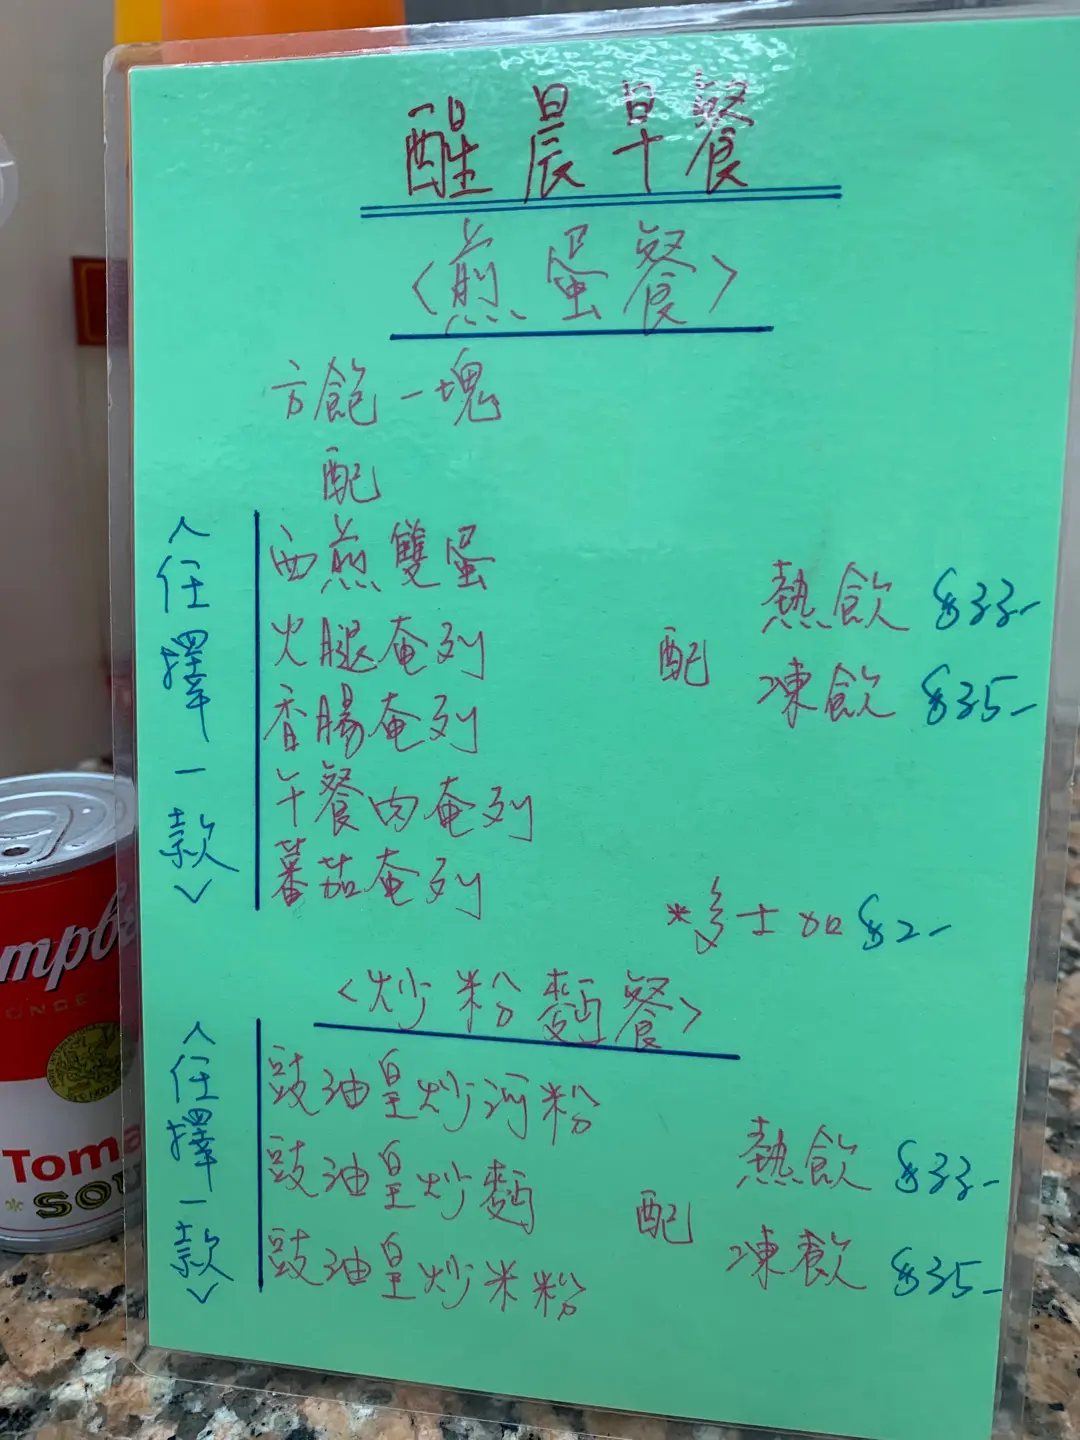 醒晨早餐
<煎蛋餐>
方飽一塊
配
<任擇一款>
西煎雙蛋
火腿奄列
香腸奄列
午餐肉奄列
蕃茄奄列
配
熱飲 $33-
凍飲 $35-
*多士加$2-
<炒粉麵餐>
<任擇一款>
豉油皇炒河粉
豉油皇炒麵
豉油皇炒米粉
配
熱飲 $33-
凍飲 $35-
Toma
SOU